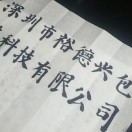 深圳市裕德兴包
科技有限公司